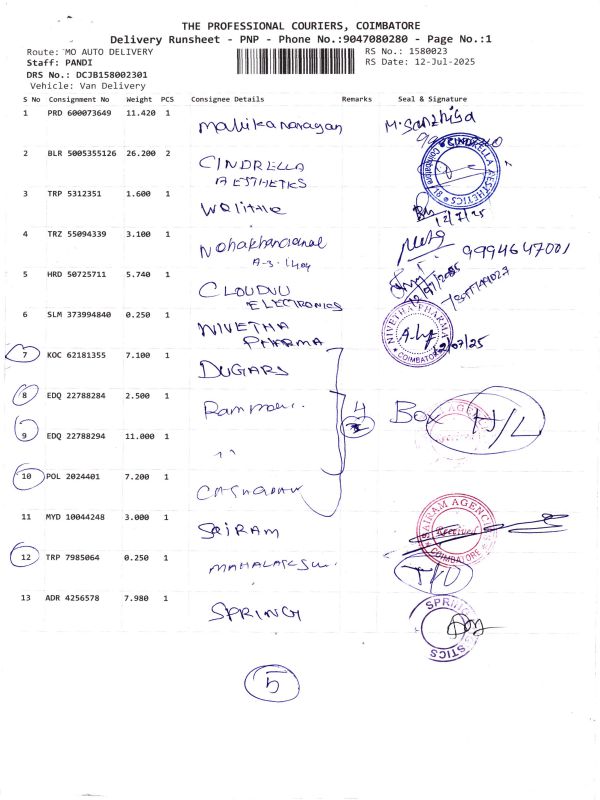 THE PROFESSIONAL COURIERS, COIMBATORE
Delivery Runsheet - PNP - Phone No.:9047080280 - Page No.:1
Route: MO AUTO DELIVERY
RS No.: 1580023
Staff: PANDI
RS Date: 12-Jul-2025
DRS No.: DCJB158002301
Vehicle: Van Delivery
S No Consignment No Weight PCS Consignee Details Remarks Seal & Signature
1 PRD 600073649 11.420 1
2 BLR 5005355126 26.200 2 CINDRELLA
AESTHETICS
3 TRP 5312351 1.600 1
12/7/25
4 TRZ 55094339 3.100 1
9994647001
5 HRD 50725711 5.740 1 CLOUDVU
ELECTRONICS
6 SLM 373994840 0.250 1 NIVETHA
PHARMA
NIVETHA PHARMA
COIMBATORE
12/07/25
7 KOC 62181355 7.100 1 DUGARS
8 EDQ 22788284 2.500 1
4 Box H/L
9 EDQ 22788294 11.000 1 "
10 POL 2024401 7.200 1
11 MYD 10044248 3.000 1 SAIRAM
SAIRAM AGENCY
Received
COIMBATORE
12 TRP 7985064 0.250 1
13 ADR 4256578 7.980 1 SPRING
5